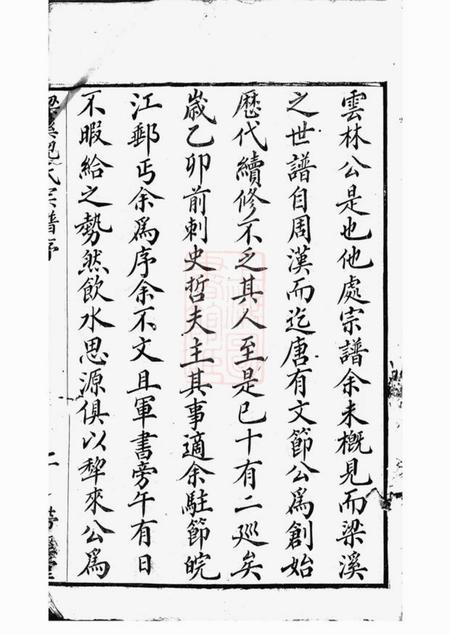 雲林公是也他處宗譜余未概見而梁溪
之世譜自周漢而迄唐有文節公為創始
歷代續修不乏其人至是已十有二廵矣
歲乙卯前刺史哲夫主其事適余駐節皖
江郵丐余為序余不文且軍書旁午有日
不暇給之勢然飲水思源俱以犂來公為
氏宗譜序